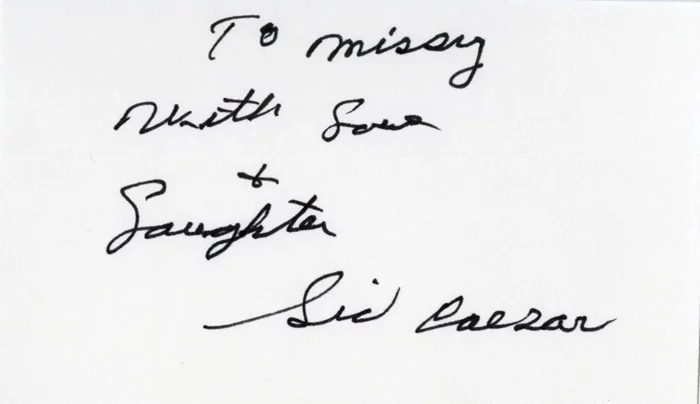 To Missy
With Love
+
Laughter
Sid Caesar